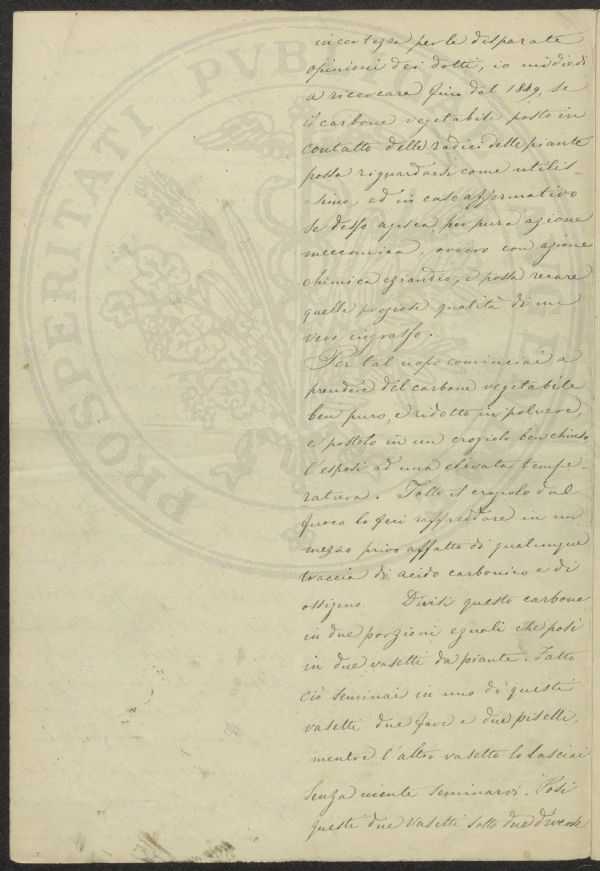 incertezza per le disparate
opinioni dei dotti, io mi diedi
a ricercare fino dal 1849, se
il carbone vegetabile posto in
contatto delle radici delle piante
possa riguardarsi come utilis-
simo, ed in caso affermativo
se desso agisca per pura azione
meccanica, ovvero con azione
chimica eziandio, e possa recare
quelle preziose qualità di un
vero ingrasso.
Per tal uopo cominciai a
prendere del carbone vegetabile
ben puro, e ridotto in polvere,
e postolo in un crogiolo ben chiuso
l'esposi ad una elevata tempe-
ratura. Tolto il crogiolo dal
fuoco lo feci raffreddare in un
mezzo privo affatto di qualunque
traccia di acido carbonico e di
ossigeno. Divisi questo carbone
in due porzioni eguali che posi
in due vasetti da piante. Fatto
ciò seminai in uno di questi
vasetti due fave e due piselli,
mentre l'altro vasetto lo lasciai
senza niente seminarvi. Posi
questi due vasetti sotto due diverse
PROSPERITATI PVBL